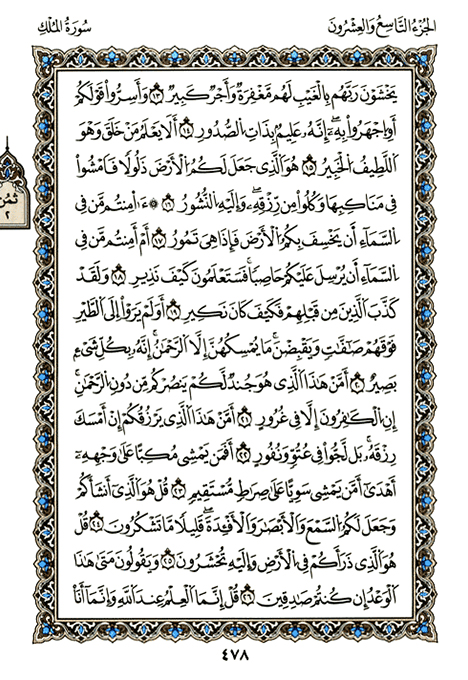 الجُزْءُ التَّاسِعُ وَالعِشْرُونَ
سُورَةُ المُلْكِ
يَخْشَوْنَ رَبَّهُم بِالْغَيْبِ لَهُم مَّغْفِرَةٌ وَأَجْرٌ كَبِيرٌ ١٣ وَأَسِرُّوا۟ قَوْلَكُمْ
أَوِ اجْهَرُوا۟ بِهِۦٓ إِنَّهُۥ عَلِيمٌۢ بِذَاتِ الصُّدُورِ ١٤ أَلَا يَعْلَمُ مَنْ خَلَقَ وَهْوَ
اللَّطِيفُ الْخَبِيرُ ١٥ هُوَ الَّذِى جَعَلَ لَكُمُ الْأَرْضَ ذَلُولًا فَامْشُوا۟
فِى مَنَاكِبِهَا وَكُلُوا۟ مِن رِّزْقِهِۦ وَإِلَيْهِ النُّشُورُ ١٦ ۞ ءَا۬مِنتُم مَّن فِى
السَّمَآءِ اَ۬ن يَخْسِفَ بِكُمُ الْأَرْضَ فَإِذَا هِىَ تَمُورُ ١٧ أَمْ أَمِنتُم مَّن فِى
السَّمَآءِ اَ۬ن يُرْسِلَ عَلَيْكُمْ حَاصِبًا فَسَتَعْلَمُونَ كَيْفَ نَذِيرِ ١٨ وَلَقَدْ
كَذَّبَ الَّذِينَ مِن قَبْلِهِمْ فَكَيْفَ كَانَ نَكِيرِ ١٩ أَوَلَمْ يَرَوْا۟ إِلَى الطَّيْرِ
فَوْقَهُمْ صَٰٓفَّٰتٍ وَيَقْبِضْنَ مَا يُمْسِكُهُنَّ إِلَّا الرَّحْمَٰنُ إِنَّهُۥ بِكُلِّ شَىْءٍۭ
بَصِيرٌ ٢٠ أَمَّنْ هَٰذَا الَّذِى هُوَ جُندٌ لَّكُمْ يَنصُرُكُم مِّن دُونِ الرَّحْمَٰنِ
إِنِ الْكَٰفِرُونَ إِلَّا فِى غُرُورٍ ٢١ أَمَّنْ هَٰذَا الَّذِى يَرْزُقُكُمْ إِنْ أَمْسَكَ
رِزْقَهُۥ بَل لَّجُّوا۟ فِى عُتُوٍّ وَنُفُورٍ ٢٢ أَفَمَن يَمْشِى مُكِبًّا عَلَىٰ وَجْهِهِۦٓ
أَهْدَىٰٓ أَمَّن يَمْشِى سَوِيًّا عَلَىٰ صِرَٰطٍ مُّسْتَقِيمٍ ٢٣ قُلْ هُوَ الَّذِىٓ أَنشَأَكُمْ
وَجَعَلَ لَكُمُ السَّمْعَ وَالْأَبْصَٰرَ وَالْأَفْـِٔدَةَ قَلِيلًا مَّا تَشْكُرُونَ ٢٤ قُلْ
هُوَ الَّذِى ذَرَأَكُمْ فِى الْأَرْضِ وَإِلَيْهِ تُحْشَرُونَ ٢٥ وَيَقُولُونَ مَتَىٰ هَٰذَا
الْوَعْدُ إِن كُنتُمْ صَٰدِقِينَ ٢٦ قُلْ إِنَّمَا الْعِلْمُ عِندَ اللَّهِ وَإِنَّمَآ أَنَا۠
ثُمُن
٢
٤٧٨